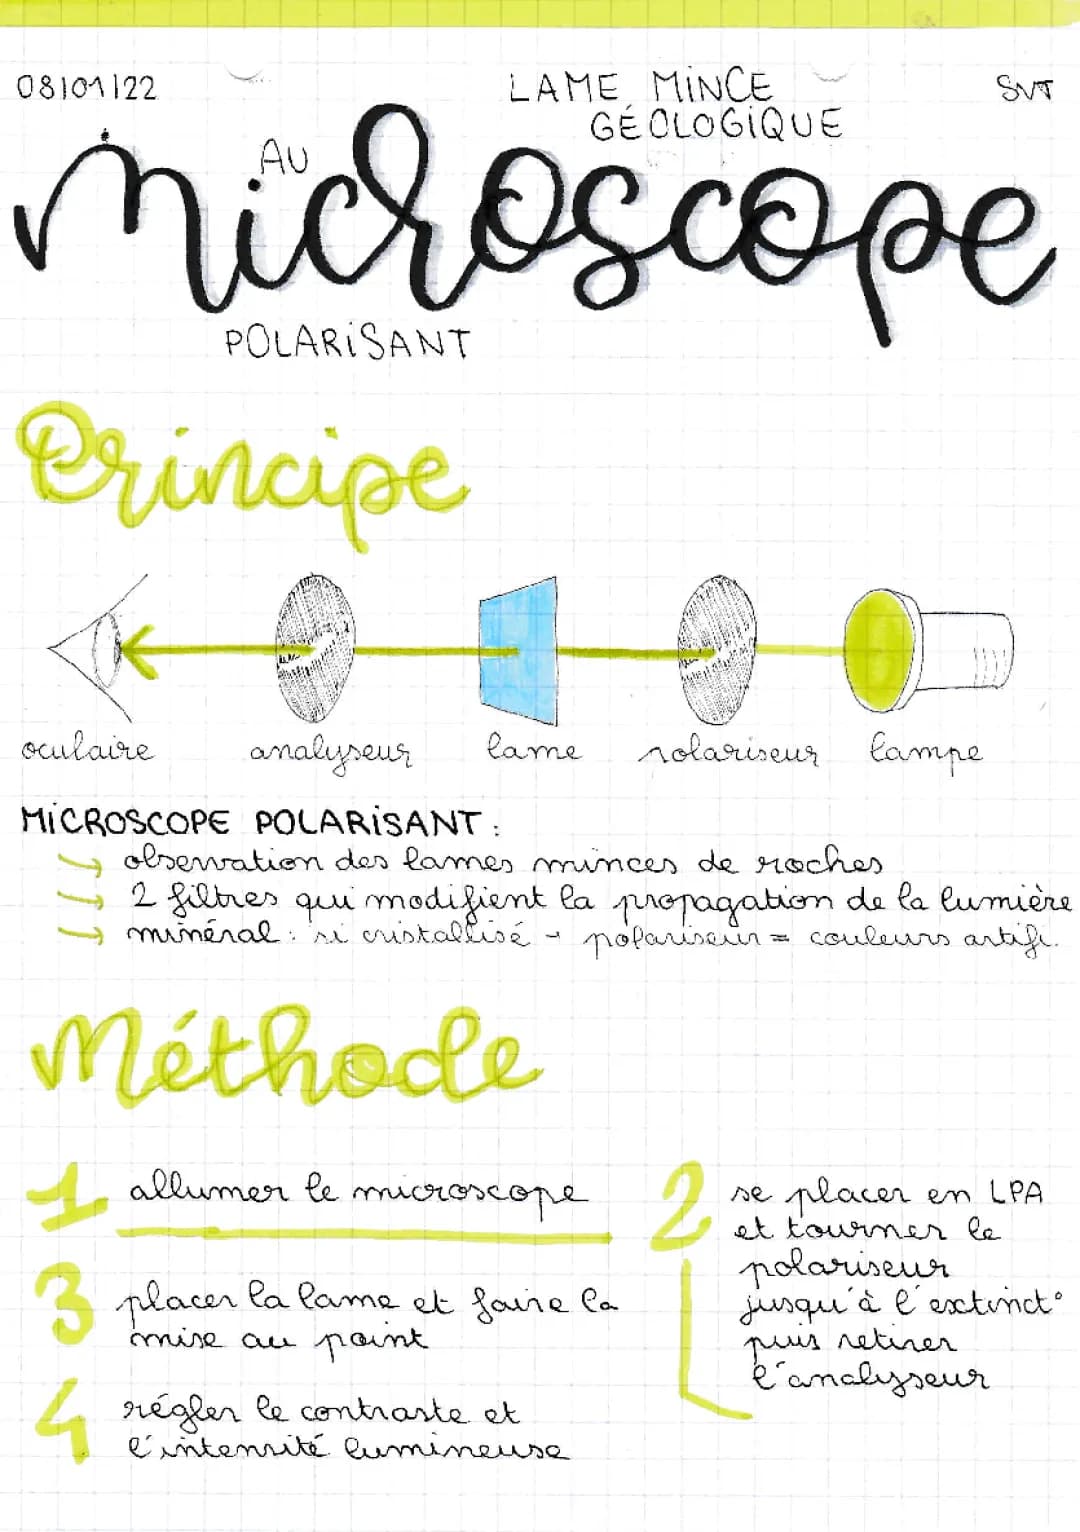 08/01/22
LAME MINCE
GÉOLOGIQUE
SVT
AU
Microscope
POLARISANT
Principe
oculaire analyseur lame polariseur lampe
MICROSCOPE POLARISANT :
↳ observation des lames minces de roches
↳ 2 filtres qui modifient la propagation de la lumière
↳ minéral : si cristallisé + polariseur = couleurs artifi.
Méthode
1 allumer le microscope
2 se placer en LPA
et tourner le
polariseur
jusqu'à l'extinct°
puis retirer
l'analyseur
3 placer la lame et faire la
mise au point
4 régler le contraste et
l'intensité lumineuse